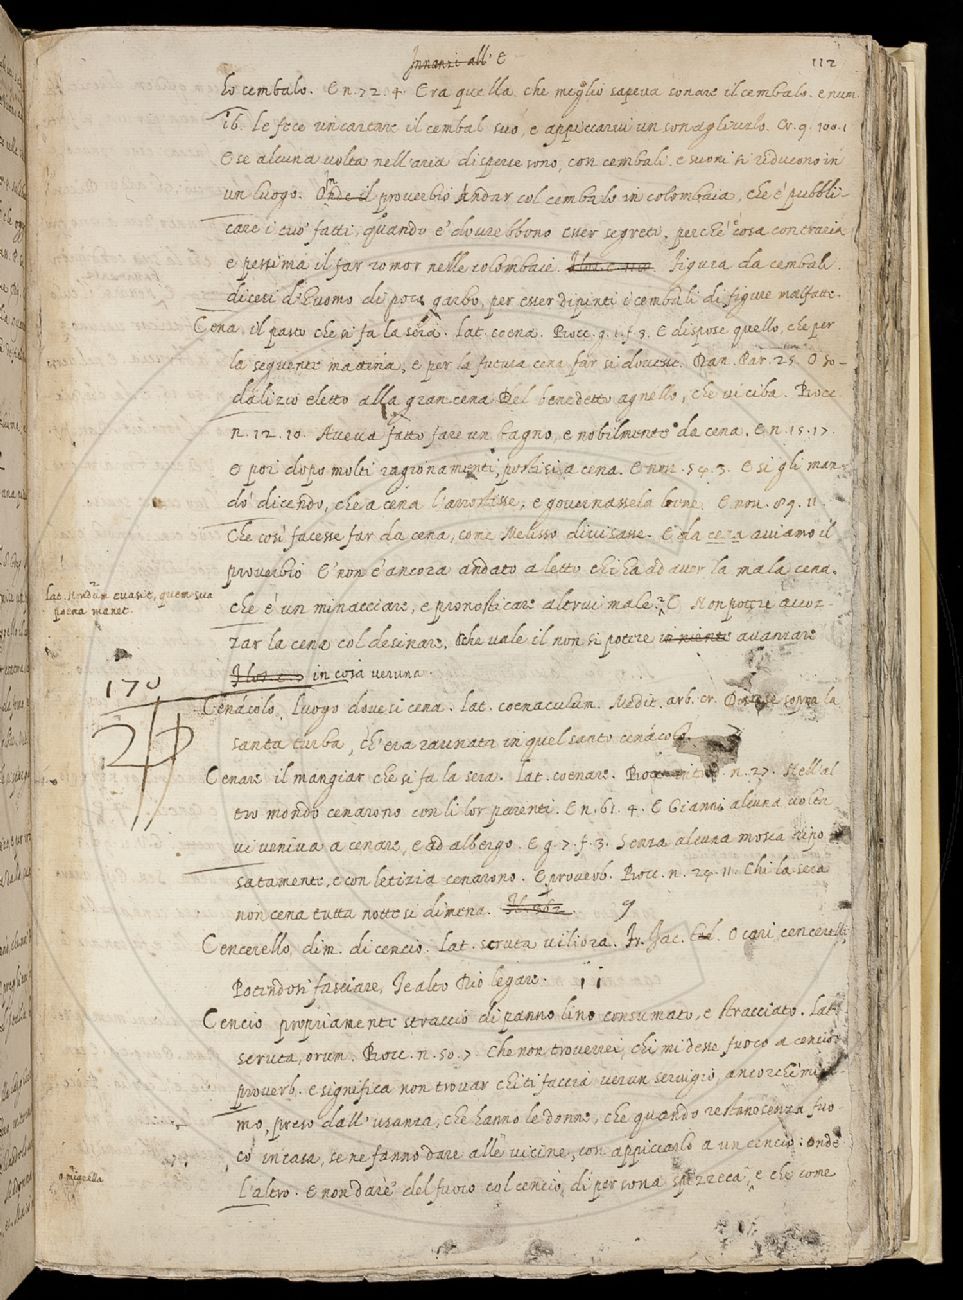 Innanzi all' E
112
lo cembalo. E n. 72. 4. Era quella che meglio sapeva sonare il cembalo. e num.
16. Le fece un cartare il cembal suo, e appiccarvi un sonagliuzlo. Cr. 9. 100. 1
E se alcuna volta nell'aria disperse sono, con cembali, e suoni si riducono in
un luogo. Onde il proverbio Andar col cembalo in colombaia, che è pubbli-
care i tuo' fatti, quando e' dovrebbono esser segreti. perchè è cosa contraria
e pessima il far romor nelle colombaie. Figura da cembali.
dicesi d'huomo di poco garbo, per esser dipinti i cembali di figure malfatte.
Cena, il pasto che si fa la sera. Lat. coena. Bocc. g. 1. f. 3. E dispose quello, che per
la seguente mattina, e per la futura cena far si dovesse. Dan. Par. 25. O so-
dalizio eletto alla gran cena Del benedetto agnello, che vi ciba. Bocc.
n. 12. 10. Aveva fatto fare un bagno, e nobilmente da cena. E n. 15. 17.
e poi dopo molti ragionamenti, postisi a cena. E nov. 54. 3. E sì gli man-
dò dicendo, che a cena l'arrostisse, e governassela bene. E nov. 89. 11.
Che così facesse far da cena, come Melisso divisasse. E da cena aviamo il
proverbio E' non è ancora andato a letto chi ha ad aver la mala cena.
Lat. Nondum evasit, quem sua
poena manet.
che è un minacciare, e pronosticare altrui male. E Non potere accoz-
zar la cena col desinare, che vale il non si potere in niente avanzare
in cosa veruna.
170
Cenacolo, Luogo dove si cena. Lat. coenaculum. Medit. arb. cr. sopra la
santa turba, ch'era raunata in quel santo cenacolo.
Cenare il mangiar che si fa la sera. Lat. coenare. Bocc. n. 27. Nell'al
tro mondo cenarono con li lor parenti. E n. 61. 4. E Gianni alcuna volta
vi veniva a cenare, e ad albergo. E g. 7. f. 3. Senza alcuna mosca ripo-
satamente, e con letizia cenarono. E proverb. Bocc. n. 24. 11. Chi la sera
non cena tutta notte si dimena.
Cencerello, dim. di cencio. Lat. scruta viliora. Fr. Jac. O cari cencerelli
Potendosi fasciare, Je alto Dio legare.
Cencio propriamente straccio di panno lino consumato, e stracciato. Lat.
scruta, orum. Bocc. n. 50. 7. Che non troverrei, chi mi desse fuoco a cencio
proverb. e significa non trovar chi ti faccia verun servigio, ancorchè mini-
mo, preso dall'usanza, che hanno le donne, che quando restano senza fuo-
co in casa, se ne fanno dare alle vicine, con appiccarlo a un cencio: onde
l'altro. E non darè del fuoco col cencio, di persona spezzeca, e che come
o migrella